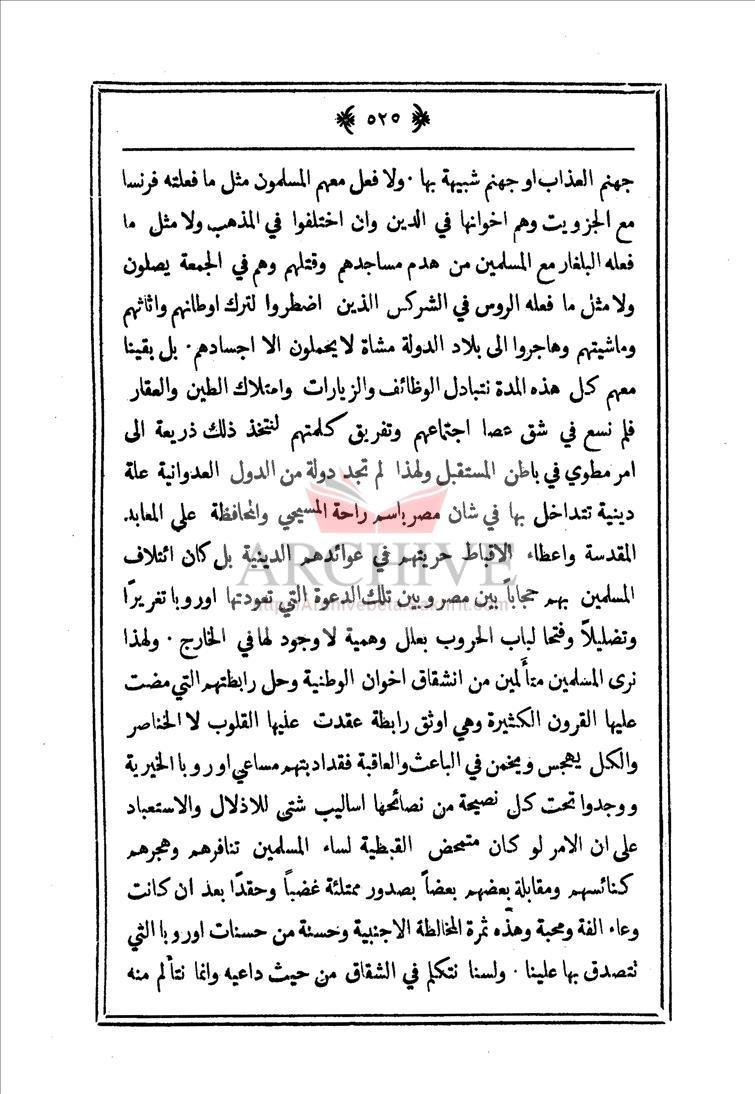 ﴿ ٥٢٥ ﴾
جهنم العذاب او جهنم شبيهة بها ٠ ولا فعل معهم المسلمون مثل ما فعلته فرنسا
مع الجزويت وهم اخوانها في الدين وان اختلفوا في المذهب ولا مثل ما
فعله البلغار مع المسلمين من هدم مساجدهم وقتلهم وهم في الجمعة يصلون
ولا مثل ما فعله الروس في الشركس الذين اضطروا لترك اوطانهم واثاثهم
وماشيتهم وهاجروا الى بلاد الدولة مشاة لا يحملون الا اجسادهم ٠ بل بقينا
معهم كل هذه المدة نتبادل الوظائف والزيارات وامتلاك الطين والعقار
فلم نسع في شق عصا اجتماعهم وتفريق كلمتهم لنتخذ ذلك ذريعة الى
امر مطوي في باطن المستقبل ولهذا لم تجد دولة من الدول العدوانية علة
دينية تتداخل بها في شان مصر باسم راحة المسيحي والمحافظة علي المعابد
المقدسة واعطاء الاقباط حريتهم في عوائدهم الدينية بل كان ائتلاف
المسلمين بهم حجاباً بين مصر وبين تلك الدعوة التي تعودتها اوروبا تغريرًا
وتضليلاً وفتحا لباب الحروب بعلل وهمية لا وجود لها في الخارج ٠ ولهذا
نرى المسلمين متألمين من انشقاق اخوان الوطنية وحل رابطتهم التي مضت
عليها القرون الكثيرة وهي اوثق رابطة عقدت عليها القلوب لا الخناصر
والكل يهجس ويخمن في الباعث والعاقبة فقد ادبتهم مساعي اوروبا الخيرية
ووجدوا تحت كل نصيحة من نصائحها اساليب شتى للاذلال والاستعباد
على ان الامر لو كان متمحض القبطية لساء المسلمين تنافرهم وهجرهم
كنائسهم ومقابلة بعضهم بعضاً بصدور ممتلئة غضباً وحقدًا بعد ان كانت
وعاء الفة ومحبة وهذه ثمرة المخالطة الاجنبية وحسنة من حسنات اوروبا التي
تتصدق بها علينا ٠ ولسنا نتكلم في الشقاق من حيث داعيه وانما نتألم منه
ARCHIVE